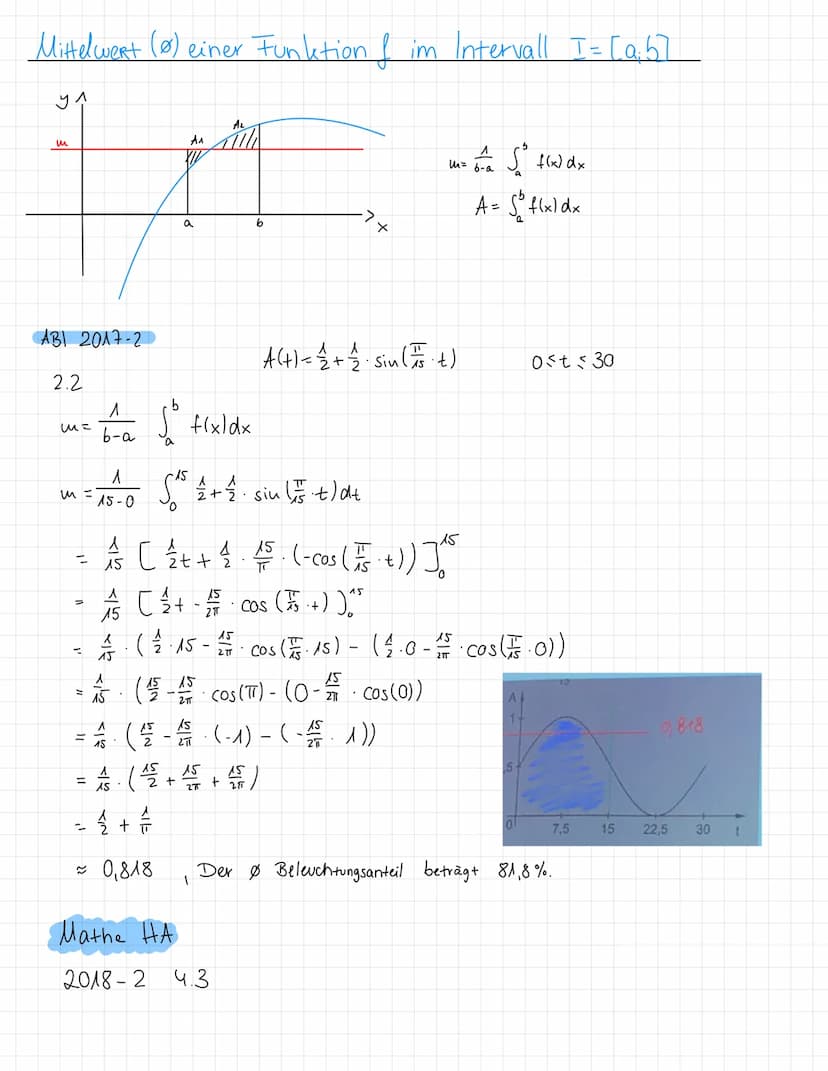 Mittelwert (ø) einer Funktion f im Intervall I = [a;b]
y
m
A1
A2
a
b
x
m = 1/(b-a) ∫_a^b f(x) dx
A = ∫_a^b f(x) dx
ABI 2017-2
A(t) = 1/2 + 1/2 · sin(π/15 · t) 0 ≤ t ≤ 30
2.2
m = 1/(b-a) ∫_a^b f(x) dx
m = 1/(15-0) ∫_0^15 1/2 + 1/2 · sin(π/15 · t) dt
= 1/15 [ 1/2 t + 1/2 · 15/π · (-cos(π/15 · t)) ]_0^15
= 1/15 [ 1/2 t - 15/2π · cos(π/15 · t) ]_0^15
= 1/15 · ( 1/2 · 15 - 15/2π · cos(π/15 · 15) - ( 1/2 · 0 - 15/2π · cos(π/15 · 0))
= 1/15 · ( 15/2 - 15/2π · cos(π) - (0 - 15/2π · cos(0))
= 1/15 · ( 15/2 - 15/2π · (-1) - (- 15/2π · 1))
= 1/15 · ( 15/2 + 15/2π + 15/2π )
= 1/2 + 1/π
≈ 0,818 , Der ø Beleuchtungsanteil beträgt 81,8 %.
A
1
0,818
,5
0 7,5 15 22,5 30 t
Mathe HA
2018-2 4.3